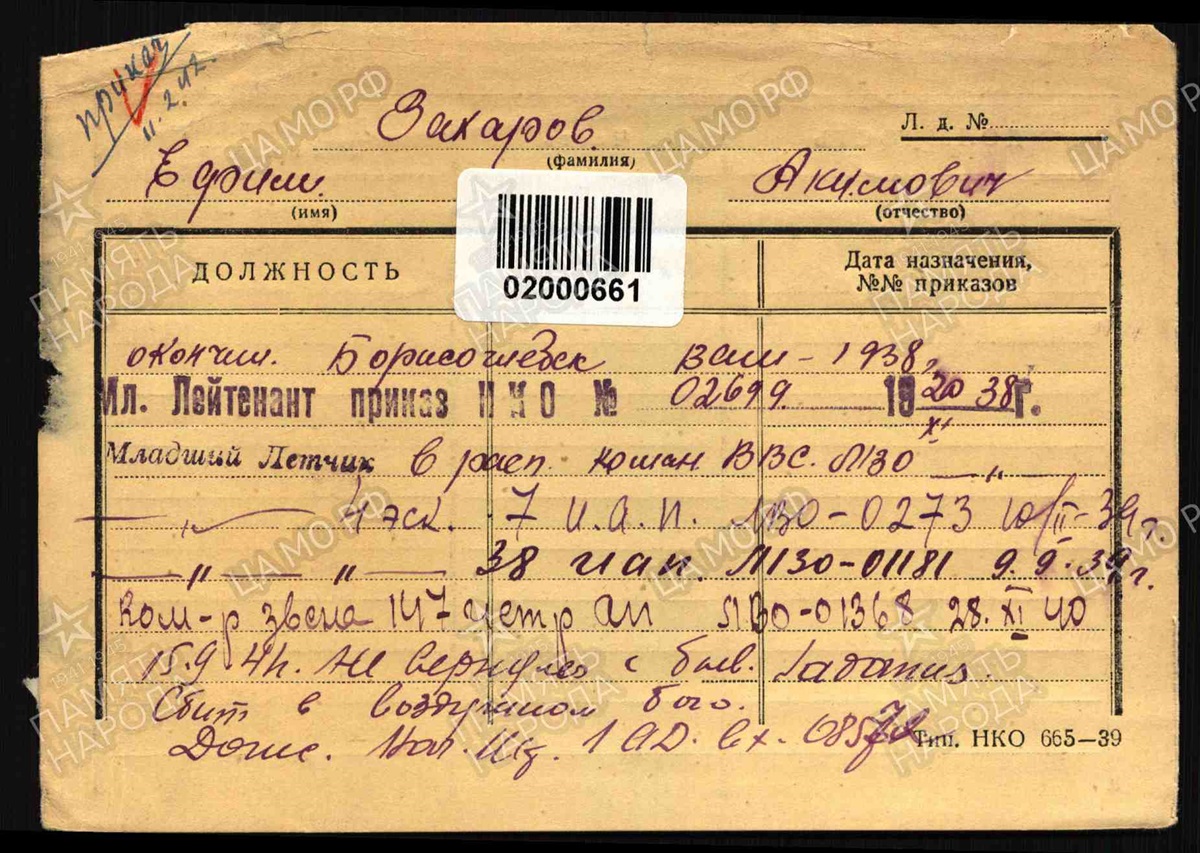 приказ
11.2.42.
Захаров
(фамилия)
Л. д. №
Ефим
(имя)
Акимович
(отчество)
02000661
ДОЛЖНОСТЬ
Дата назначения,
№№ приказов
окончил Борисоглебск ВАШ - 1938г
Мл. Лейтенант приказ НКО № 02699 19 20/XI 38 г.
Младший Летчик в расп. коман. ВВС. ЛВО — " —
— " — 4 эск. 7 И.А.П. ЛВО-0273 10/II-39 г.
— " — " — 38 иап. ЛВО-01181 9.9.39 г.
Ком-р звена 147 ЛВО-01368 28.XI 40
15.9 41. Не вернулся с боев. задания.
Сбит в воздушном бою.
Донес. 1 АД. вх.
Тип. НКО 665—39
ЦАМО.РФ
ПАМЯТЬ НАРОДА
1941-1945